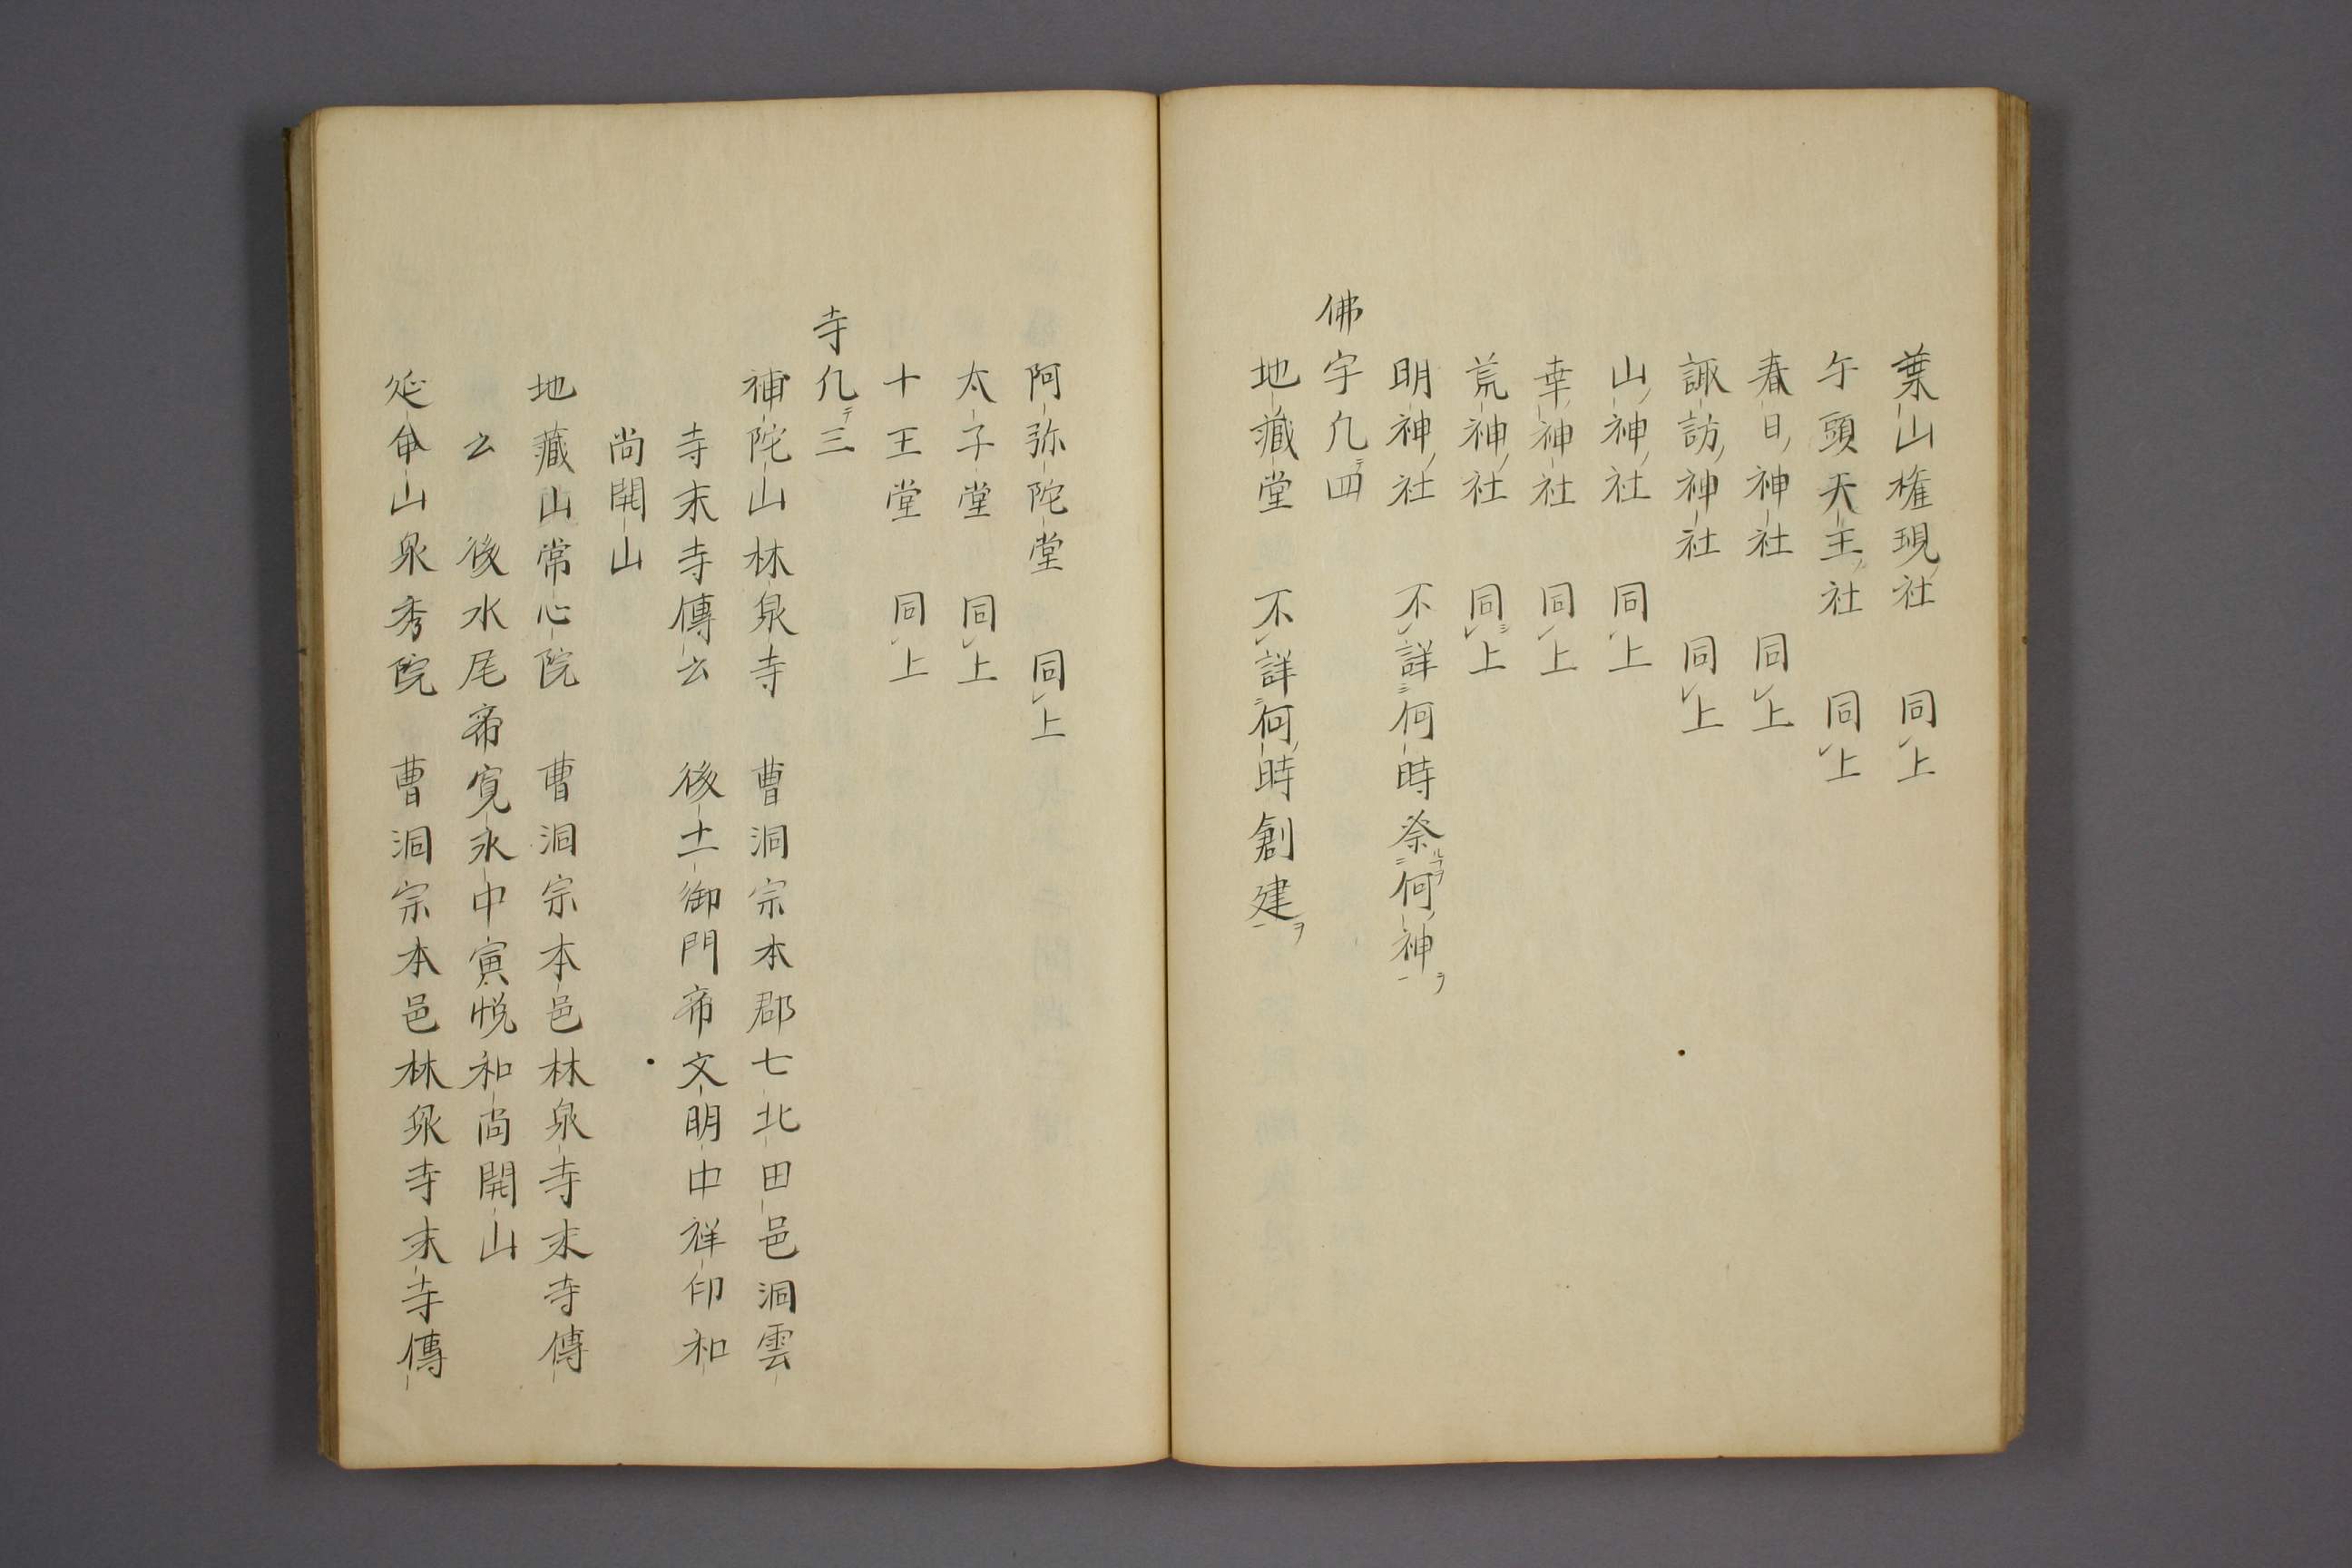 葉山権現ノ社　同レ上
午頭天王ノ社　同レ上
春日ノ神社　同レ上
諏訪ノ神社　同レ上
山ノ神ノ社　同レ上
幸ノ神社　同レ上
荒神ノ社　同シレ上
明神ノ社　不レ詳ニ何時祭ルコヲニ何ノ神ヲ一
佛宇凢テ四
地藏堂　不レ詳ニ何ノ時創建ヲ一
阿弥陀堂　同レ上
太子堂　同レ上
十王堂　同レ上
寺凢テ三
補陀山林泉寺　曹洞宗本郡七北田邑洞雲
寺末寺傳云　後土御門帝文明中祥印和
尚開山
地藏山常心院　曹洞宗本邑林泉寺末寺傳
云　後水尾帝寛永中寅悦和尚開山
延命山泉秀院　曹洞宗本邑林泉寺末寺傳